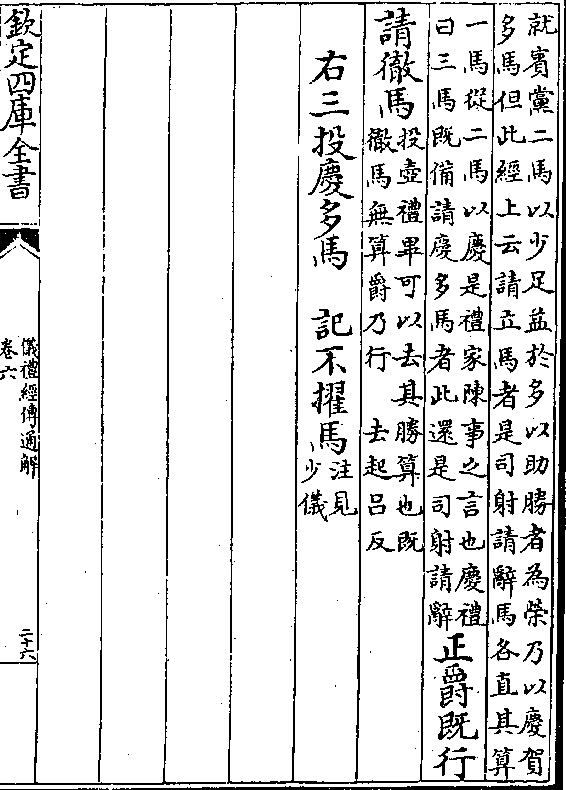 就賓黨二馬以少足益於多以助勝者為榮乃以慶賀
多馬但此經上云請立馬者是司射請辭馬各直其算
一馬從二馬以慶是禮家陳事之言也慶禮
曰三馬既備請慶多馬者此還是司射請辭
正爵既行
請徹馬
投壺禮畢可以去其勝算也既
徹馬無算爵乃行 去起吕反
右三投慶多馬 記不擢馬
注見
少儀
欽定四庫全書
儀禮經傳通解
卷六
二十六